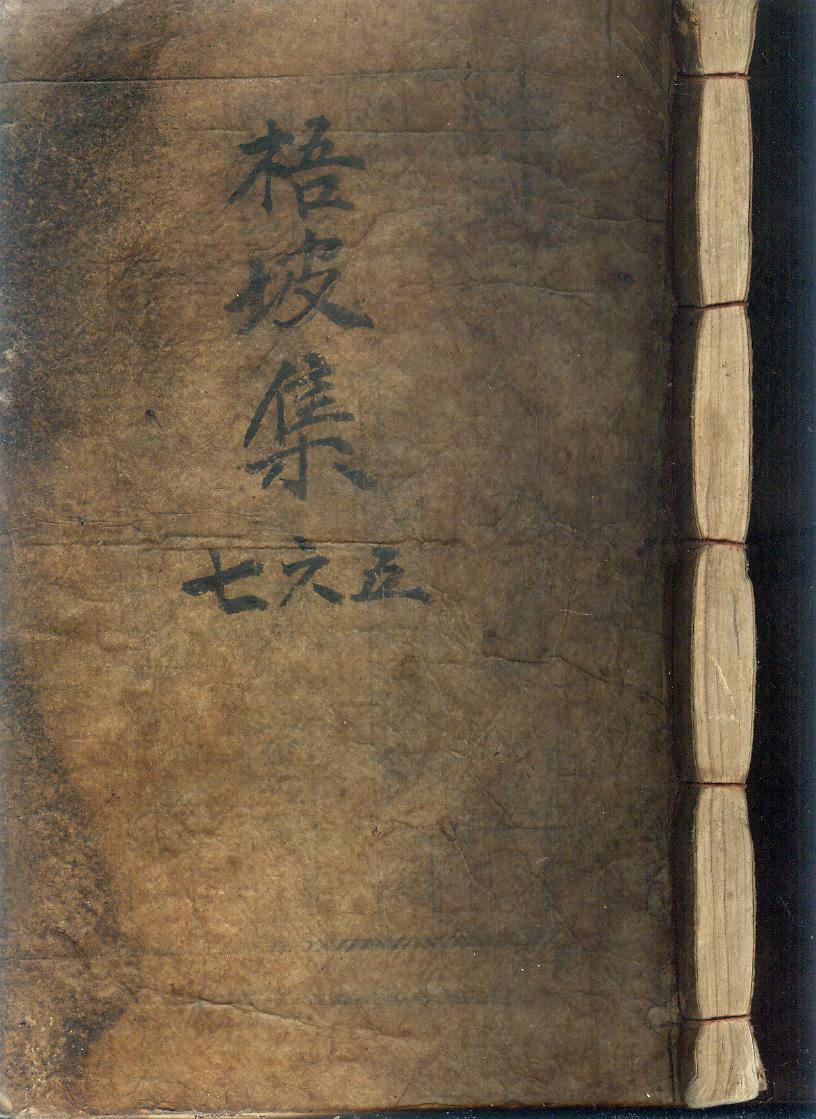 梧坡集
五六七